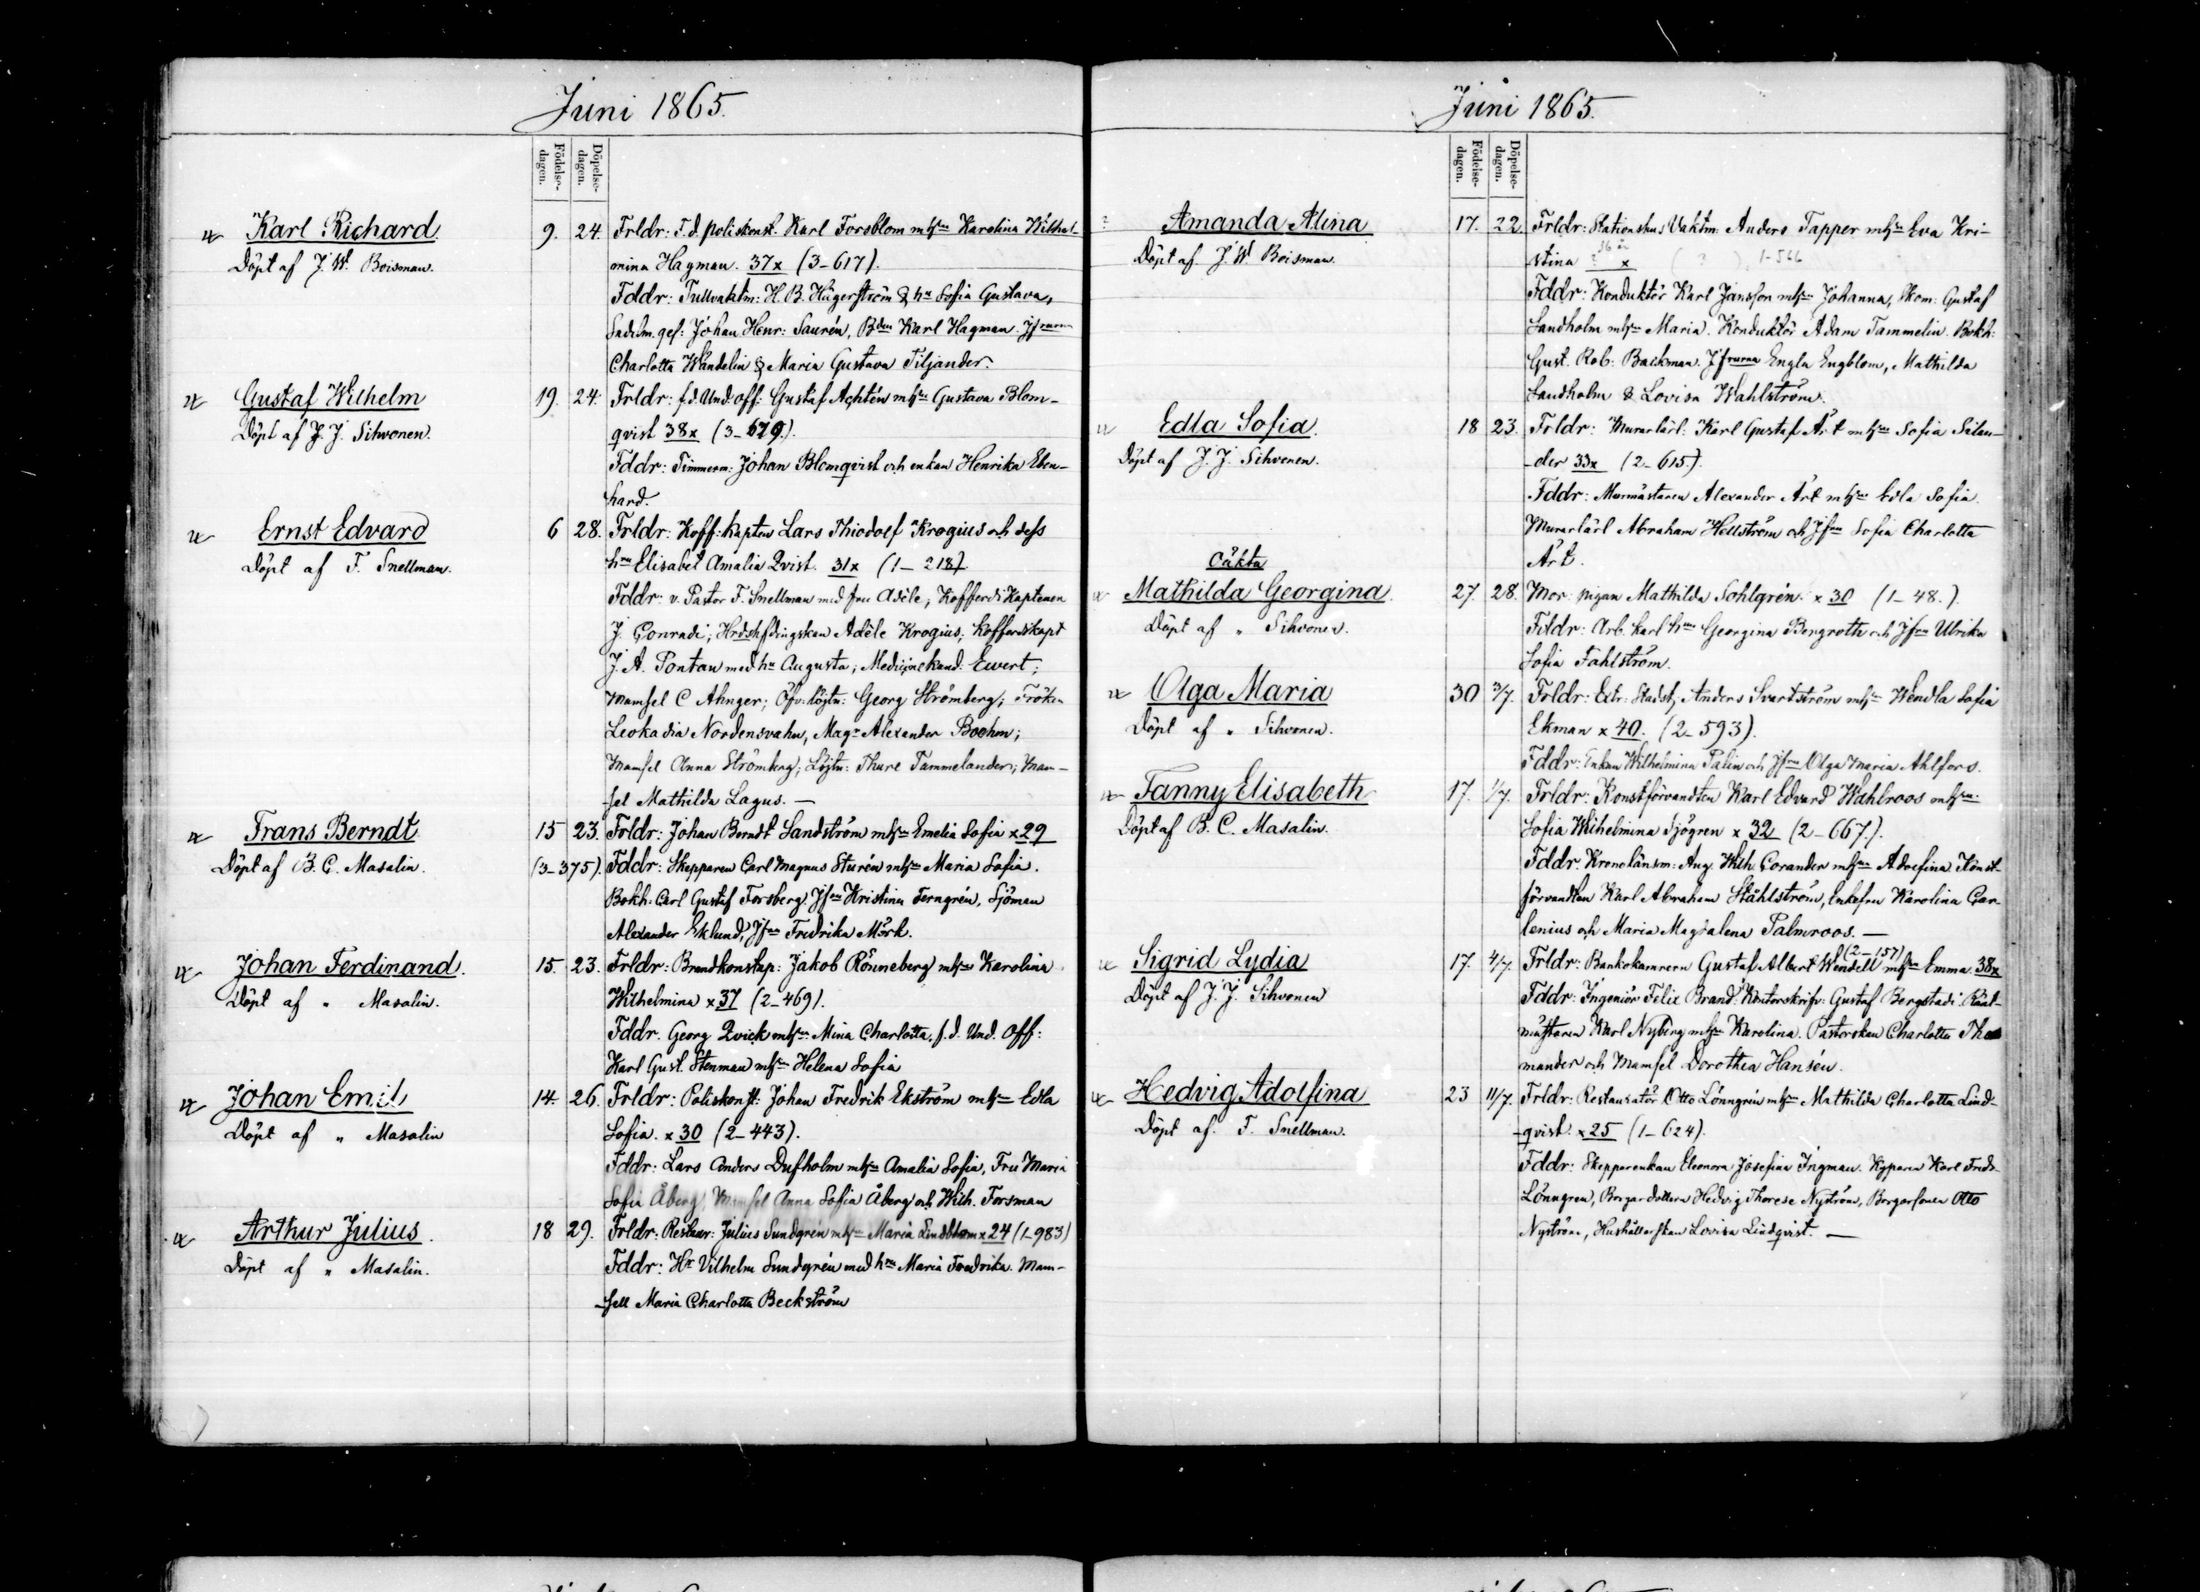 Juni 1865.
Födelse-dagen.
Döpelse-dagen.
Karl Richard.
Döpt af J. W. Boisman.
9. 24. Frldr: F. d. poliskonst. Karl Forsblom mhsru Karolina Wilhel-
mina Hagman. 37x (3-617).
Fddr: Tullvaktm: H. B. Hägerström & hru Sofia Gustava,
Sadelm. gef: Johan Henr: Saurén, Bden Karl Hagman. Jfrurna
Charlotta Wandelin & Maria Gustava Tiljander.
Gustaf Wilhelm
Döpt af J. J. Sihvonen.
19. 24. Frldr: f.d. Und. off: Gustaf Achtén mhsru Gustava Blom-
qvist 38x (3-619.).
Fddr: Timmerm: Johan Blomqvist och enkan Henrika Eben-
hard.
Ernst Edvard
Döpt af F. Snellman.
6 28. Frldr: Koff: kapten Lars Thiodolf Krogius och dess
hru Elisabet Amalia Qvist. 31x (1-218).
Fddr: v. Pastor F. Snellman med fru Adèle; Kofferdi Kaptenen
J. Conradi; Hrdshfdingskan Adèle Krogius; Kofferdikapt
J. A. Pontan med hru Augusta; Medicinekand. Ewert;
Mamsel C Ahnger; Öfv: löjtn: Georg Strömberg; Fröken
Leokadia Nordensvahn, Magr Alexander Boehm;
Mamsel Anna Strömberg; Löjtn: Thure Tammelander; Mam-
sel Mathilda Lagus. —
Frans Berndt
Döpt af B. C. Masalin.
15 23. Frldr: Johan Berndt Sandström mhsru Emelia Sofia x 29
(3-375). Fddr: Skepparen Carl Magnus Sturén mhsru Maria Sofia.
Bokh. Carl Gustaf Forsberg Jfru Kristina Terngrén, Sjöman
Alexander Eklund, Jfru Fredrika Mörk.
Johan Ferdinand.
Döpt af " Masalin.
15. 23. Frldr: Brandkonstap: Jakob Rönneberg mhsru Karolina
Wilhelmina x 37 (2-469).
Fddr. Georg Qvick mhsru Mina Charlotta, f. d. Und. Off:
Karl Gust. Stenman mhsru Helena Sofia
Johan Emil
Döpt af " Masalin
14. 26. Frldr: Poliskonst: Johan Fredrik Ekström mhsru Edla
Sofia. x 30 (2-443).
Fddr: Lars Anders Dufholm mhsru Amalia Sofia, Fru Maria
Sofia Åberg, Mamsel Anna Sofia Åberg och Wilh. Forsman
Arthur Julius.
Döpt af " Masalin.
18 29. Frldr: Restaur: Julius Sundgrén mhsru Maria Lindblom x 24 (1-983)
Fddr: Hr Vilhelm Sundgrén med hru Maria Fredrika. Mam-
sell Maria Charlotta Beckström
Juni 1865.
Födelse-dagen.
Döpelse-dagen.
? Amanda Alina
Döpt af J. W. Boisman.
17. 22. Frldr: Stationshus Vaktm: Anders Tapper mhsru Eva Kri-
stina 36 år x ( ? ) 1-566
Fddr: Konduktör Karl Jansson mhsru Johanna, Skom: Gustaf
Sandholm mhsru Maria. Konduktör Adam Tammelin. Bokh:
Gust. Rob: Backman. Jfrurna Engla Engblom, Mathilda
Sandholm & Lovisa Wahlström.
Edla Sofia.
Döpt af J. J. Sihvonen.
18 23. Frldr: Murarlärl: Karl Gustaf Ärt mhsru Sofia Sälan-
der 33x (2-615).
Fddr: Murmästaren Alexander Ärt mhsru Edla Sofia.
Murarlärl Abraham Hellström och Jfru Sofia Charlotta
Ärt.
Oäkta
Mathilda Georgina.
Döpt af " Sihvonen.
27. 28. Mor: pigan Mathilda Sohlgrén. x 30 (1-48.)
Fddr: Arb. karl hru Georgina Bergroth och Jfru Ulrika
Sofia Fahlström.
Olga Maria
Döpt af " Sihvonen.
30 3/7. Frldr: Extr: Stadstj. Anders Svartström mhsru Wendla Sofia
Ekman x 40. (2-593).
Fddr: Enkan Wilhelmina Palin och Jfru Olga Maria Ahlfors.
Fanny Elisabeth
Döpt af B. C. Masalin.
17. 1/7. Frldr: Konstförvandten Karl Edvard Wahlroos mhsru
Sofia Wilhelmina Sjögren x 32 (2-667.).
Fddr. Kronolänsm: Aug. Wilh. Corander mhsru Adolfina Konst-
förvandten Karl Abraham Ståhlström, Enkefru Karolina Gar-
lenius och Maria Magdalena Palmroos. —
Sigrid Lydia
Döpt af J. J. Sihvonen
17. 4/7. Frldr: Bankokamrern Gustaf Albert Wendell (2-157) mhsru Emma 38x
Fddr: Ingeniör Felix Brand: Kontorskrifv: Gustaf Bergstadi Råd-
mästaren Karl Nyberg mhsru Karolina. Pastorskan Charlotta Tho
mander och Mamsel Dorothea Hansén.
Hedvig Adolfina
Döpt af. F. Snellman.
23 11/7. Frldr: Restauratör Otto Lönngrén mhsru Mathilda Charlotta Lind-
qvist. x 25 (1-624).
Fddr: Skepparenkan Eleonora Josefina Ingman. Kyparen Karl Fredr
Lönngren, Borgardottern Hedvig Therese Nyström, Borgarsonen Otto
Nyström, Hushållerskan Lovisa Lindqvist. —